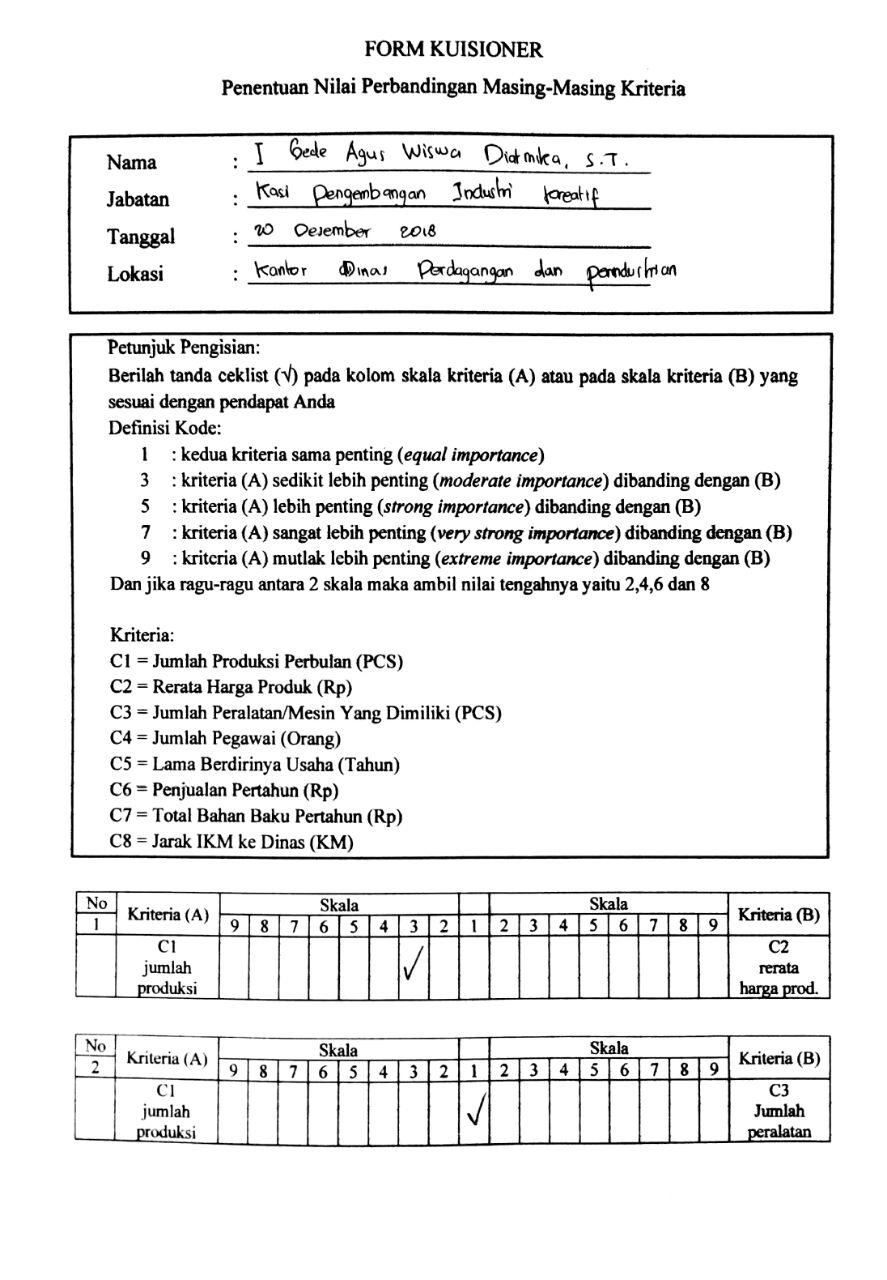 FORM KUISIONER
Penentuan Nilai Perbandingan Masing-Masing Kriteria
Nama : I Gede Agus Wiswa Diatmika, S.T.
Jabatan : Kasi Pengembangan Industri kreatif
Tanggal : 20 Desember 2018
Lokasi : Kantor Dinas Perdagangan dan perindustrian
Petunjuk Pengisian:
Berilah tanda ceklist (√) pada kolom skala kriteria (A) atau pada skala kriteria (B) yang
sesuai dengan pendapat Anda
Definisi Kode:
1 : kedua kriteria sama penting (equal importance)
3 : kriteria (A) sedikit lebih penting (moderate importance) dibanding dengan (B)
5 : kriteria (A) lebih penting (strong importance) dibanding dengan (B)
7 : kriteria (A) sangat lebih penting (very strong importance) dibanding dengan (B)
9 : kriteria (A) mutlak lebih penting (extreme importance) dibanding dengan (B)
Dan jika ragu-ragu antara 2 skala maka ambil nilai tengahnya yaitu 2,4,6 dan 8
Kriteria:
C1 = Jumlah Produksi Perbulan (PCS)
C2 = Rerata Harga Produk (Rp)
C3 = Jumlah Peralatan/Mesin Yang Dimiliki (PCS)
C4 = Jumlah Pegawai (Orang)
C5 = Lama Berdirinya Usaha (Tahun)
C6 = Penjualan Pertahun (Rp)
C7 = Total Bahan Baku Pertahun (Rp)
C8 = Jarak IKM ke Dinas (KM)
No Kriteria (A) Skala Skala Kriteria (B)
1 9 8 7 6 5 4 3 2 1 2 3 4 5 6 7 8 9
C1 √ C2
jumlah rerata
produksi harga prod.
No Kriteria (A) Skala Skala Kriteria (B)
2 9 8 7 6 5 4 3 2 1 2 3 4 5 6 7 8 9
C1 √ C3
jumlah Jumlah
produksi peralatan